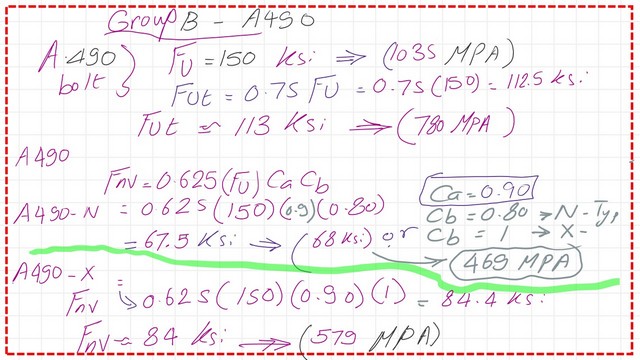 Group B - A490
A.490 bolt } FU = 150 Ksi ⇒ (1035 MPA)
FUt = 0.75 FU = 0.75 (150) = 112.5 ksi
FUt ≈ 113 Ksi ⇒ (780 MPA)
A490
Fnv = 0.625 (FU) Ca Cb
Ca = 0.90
A490-N = 0.625 (150)(0.9)(0.80)
Cb = 0.80 → N-Typ
= 67.5 Ksi → (68 ksi) or
Cb = 1 → X-
469 MPA
A490-X =
Fnv ↳ 0.625 (150) (0.90) (1) = 84.4 ksi
Fnv ≈ 84 ksi ⇒ (579 MPA)